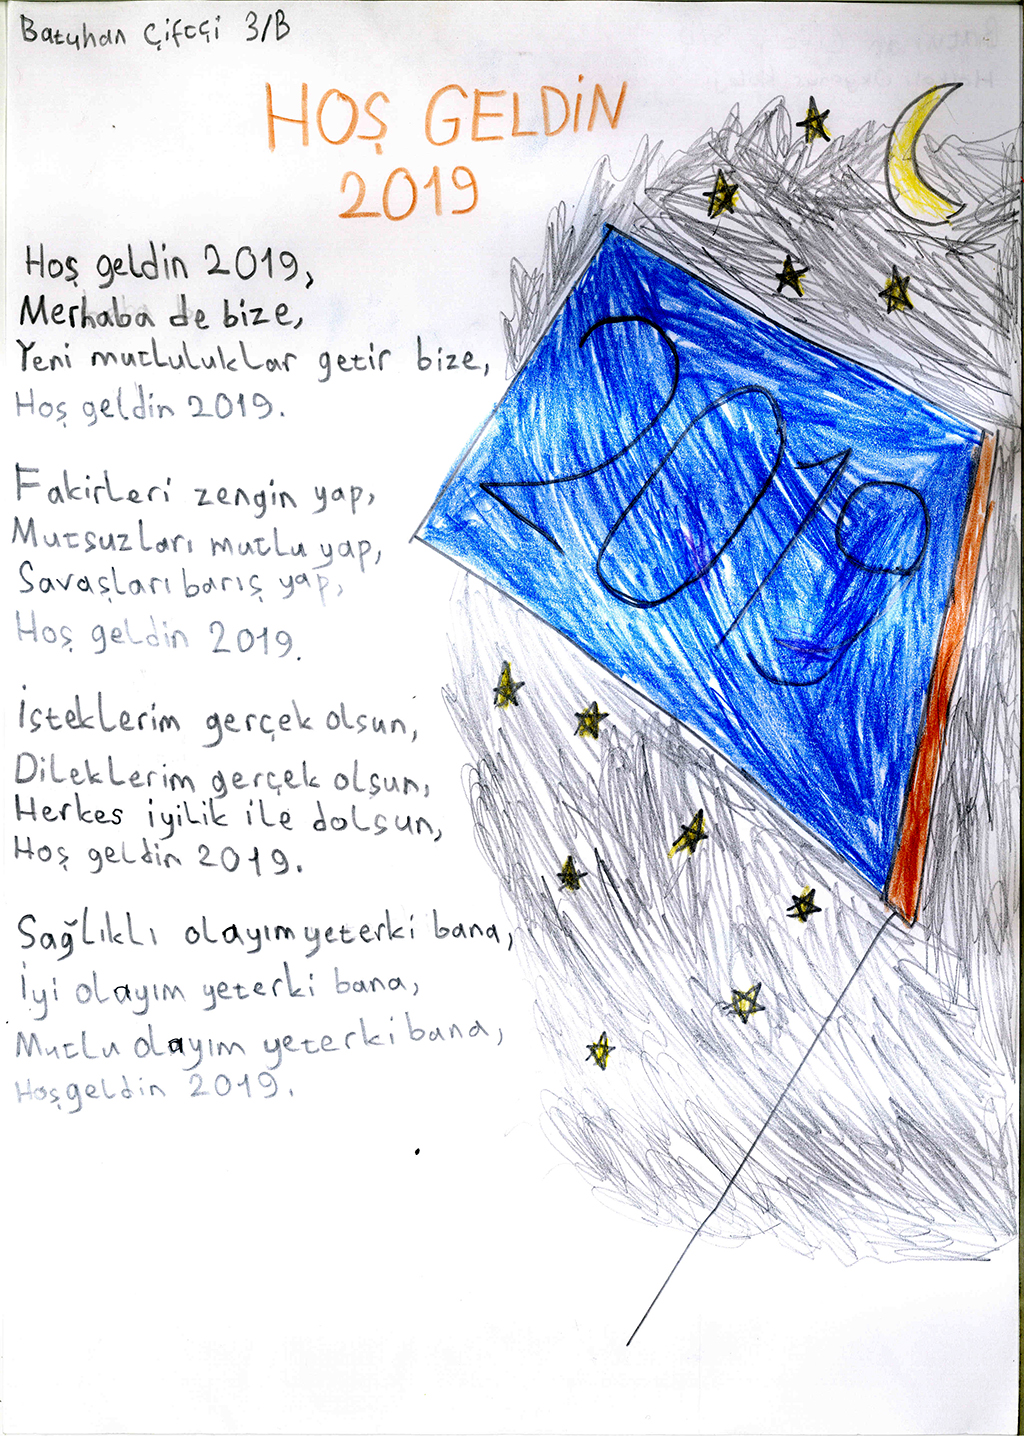 Batuhan Çiftçi 3/B
HOŞ GELDİN
2019
Hoş geldin 2019,
Merhaba de bize,
Yeni mutluluklar getir bize,
Hoş geldin 2019.
Fakirleri zengin yap,
Mutsuzları mutlu yap,
Savaşları barış yap,
Hoş geldin 2019.
İsteklerim gerçek olsun,
Dileklerim gerçek olsun,
Herkes iyilik ile dolsun,
Hoş geldin 2019.
Sağlıklı olayım yeterki bana,
İyi olayım yeterki bana,
Mutlu olayım yeterki bana,
Hoşgeldin 2019.
2019